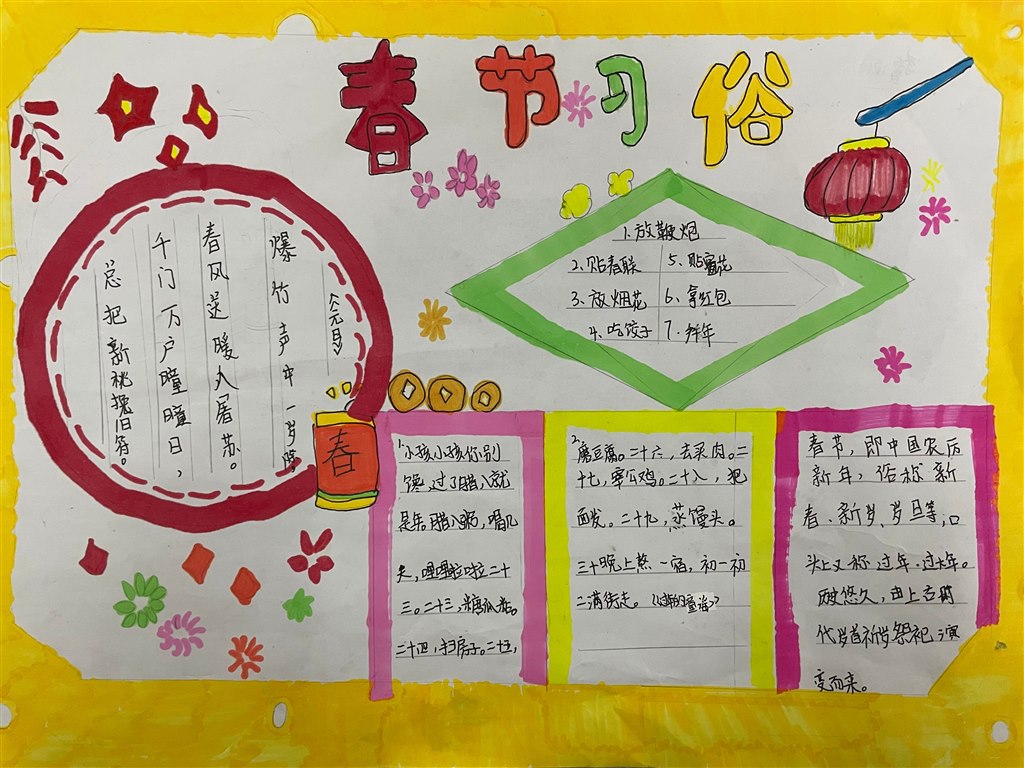 春节习俗
《元日》
爆竹声中一岁除
春风送暖入屠苏。
千门万户曈曈日，
总把新桃换旧符。
春
1.放鞭炮
2.贴春联
3.放烟花
4.吃饺子
5.贴窗花
6.拿红包
7.拜年
1.小孩小孩你别
馋，过了腊八就
是年。腊八粥，喝几
天，哩哩啦啦二十
三。二十三，糖瓜粘。
二十四，扫房子。二十五，
2.腐豆腐。二十六，去买肉。二
十七，宰公鸡。二十八，把
面发。二十九，蒸馒头。
三十晚上熬一宿，初一初
二满街走。
春节，即中国农历
新年，俗称新
春、新岁、岁旦等，口
头上又称过年、过大年。
历史悠久，由上古时
代岁首祈岁祭祀演
变而来。